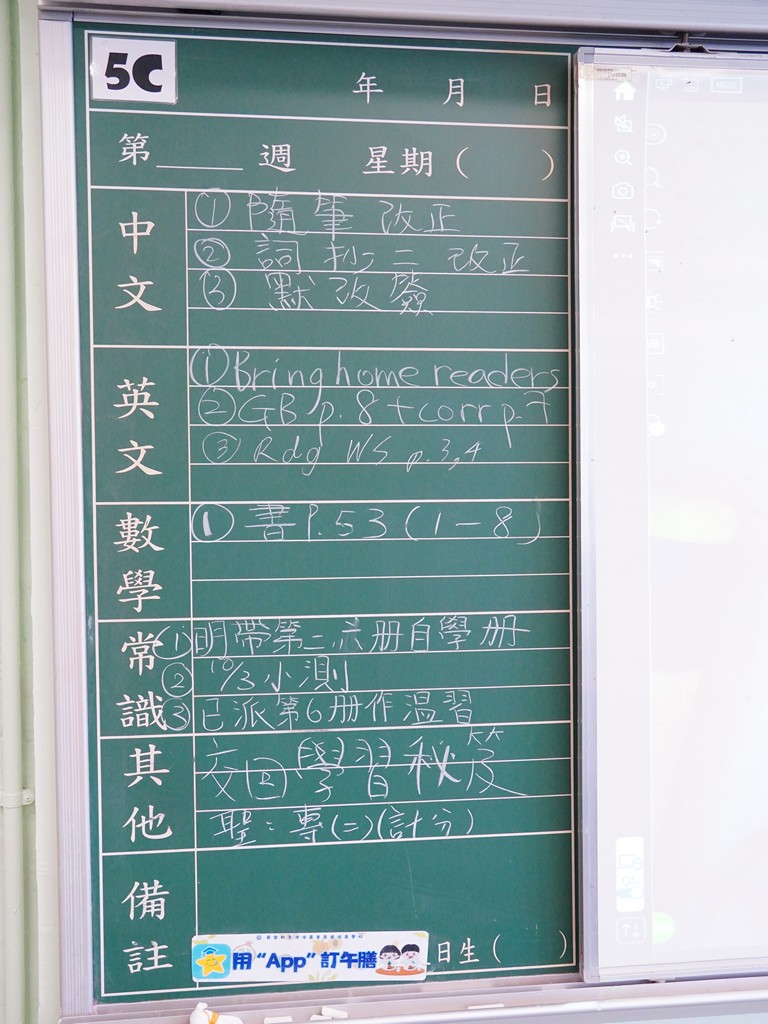 5C
年 月 日
第____週 星期( )
中文
① 隨筆改正
② 詞抄二改正
③ 默改簽
英文
① Bring home readers
② GB p.8 + corr p.7
③ Rdg WS p.3,4
數學
① 書P.53(1-8)
常識
① 明帶第二、六册自學册
② 10/3小測
③ 已派第6册作温習
其他
交回學習秘笈
聖:專(二)(計分)
備註
用“App”訂午膳
日生( )